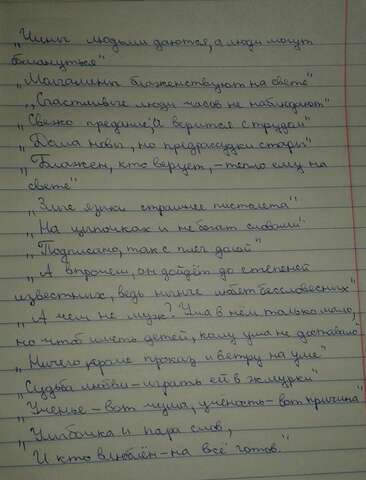 „Чины людьми даются, а люди могут
обмануться"
„Молчалины блаженствуют на свете"
„Счастливые люди часов не наблюдают"
„Свежо предание, а верится с трудом"
„Дома новы, но предрассудки стары"
„Блажен, кто верует, - тепло ему на
свете"
„Злые языки страшнее пистолета"
„На цыпочках и не богат словами"
„Подписано, так с плеч долой"
„А впрочем, он дойдёт до степеней
известных, ведь нынче любят бессловесных"
„А чем не муж? Ума в нём только мало,
но чтоб иметь детей, кому ума не доставало"
„Ничего, кроме проказ и ветру на уме"
„Судьба любви - играть ей в жмурки"
„Ученье - вот чума, учёность - вот причина"
„Улыбочка и пара слов,
И кто влюблён - на всё готов."